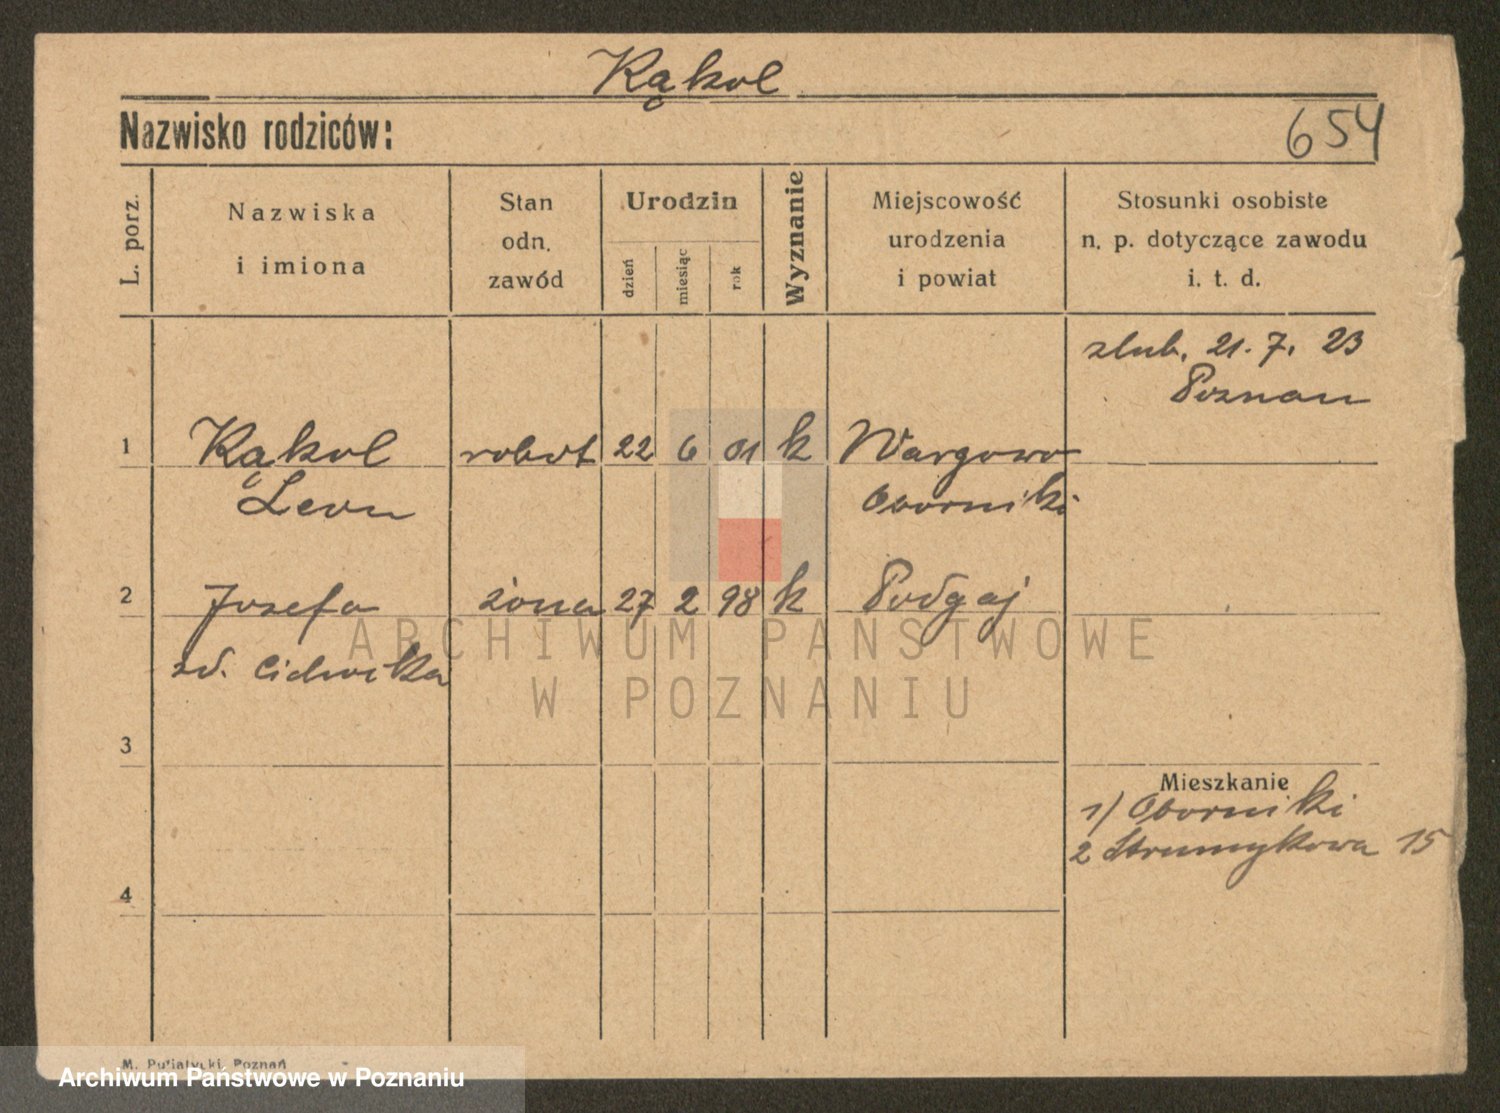 Kąkol
Nazwisko rodziców:
654
L. porz.
Nazwiska
i imiona
Stan
odn.
zawód
Urodzin
dzień
miesiąc
rok
Wyznanie
Miejscowość
urodzenia
i powiat
Stosunki osobiste
n. p. dotyczące zawodu
i. t. d.
slub. 21. 7. 23
Poznan
1 Kąkol robot 22 6 01 k Wargowo
Leon Oborniki
2 Josefa żona 27 2 98 k Podgaj
zd.
ARCHIWUM PAŃSTWOWE
W POZNANIU
3
Mieszkanie
1) Oborniki
2 Strumykowa 15
4
M. Putiatycki, Poznań
Archiwum Państwowe w Poznaniu